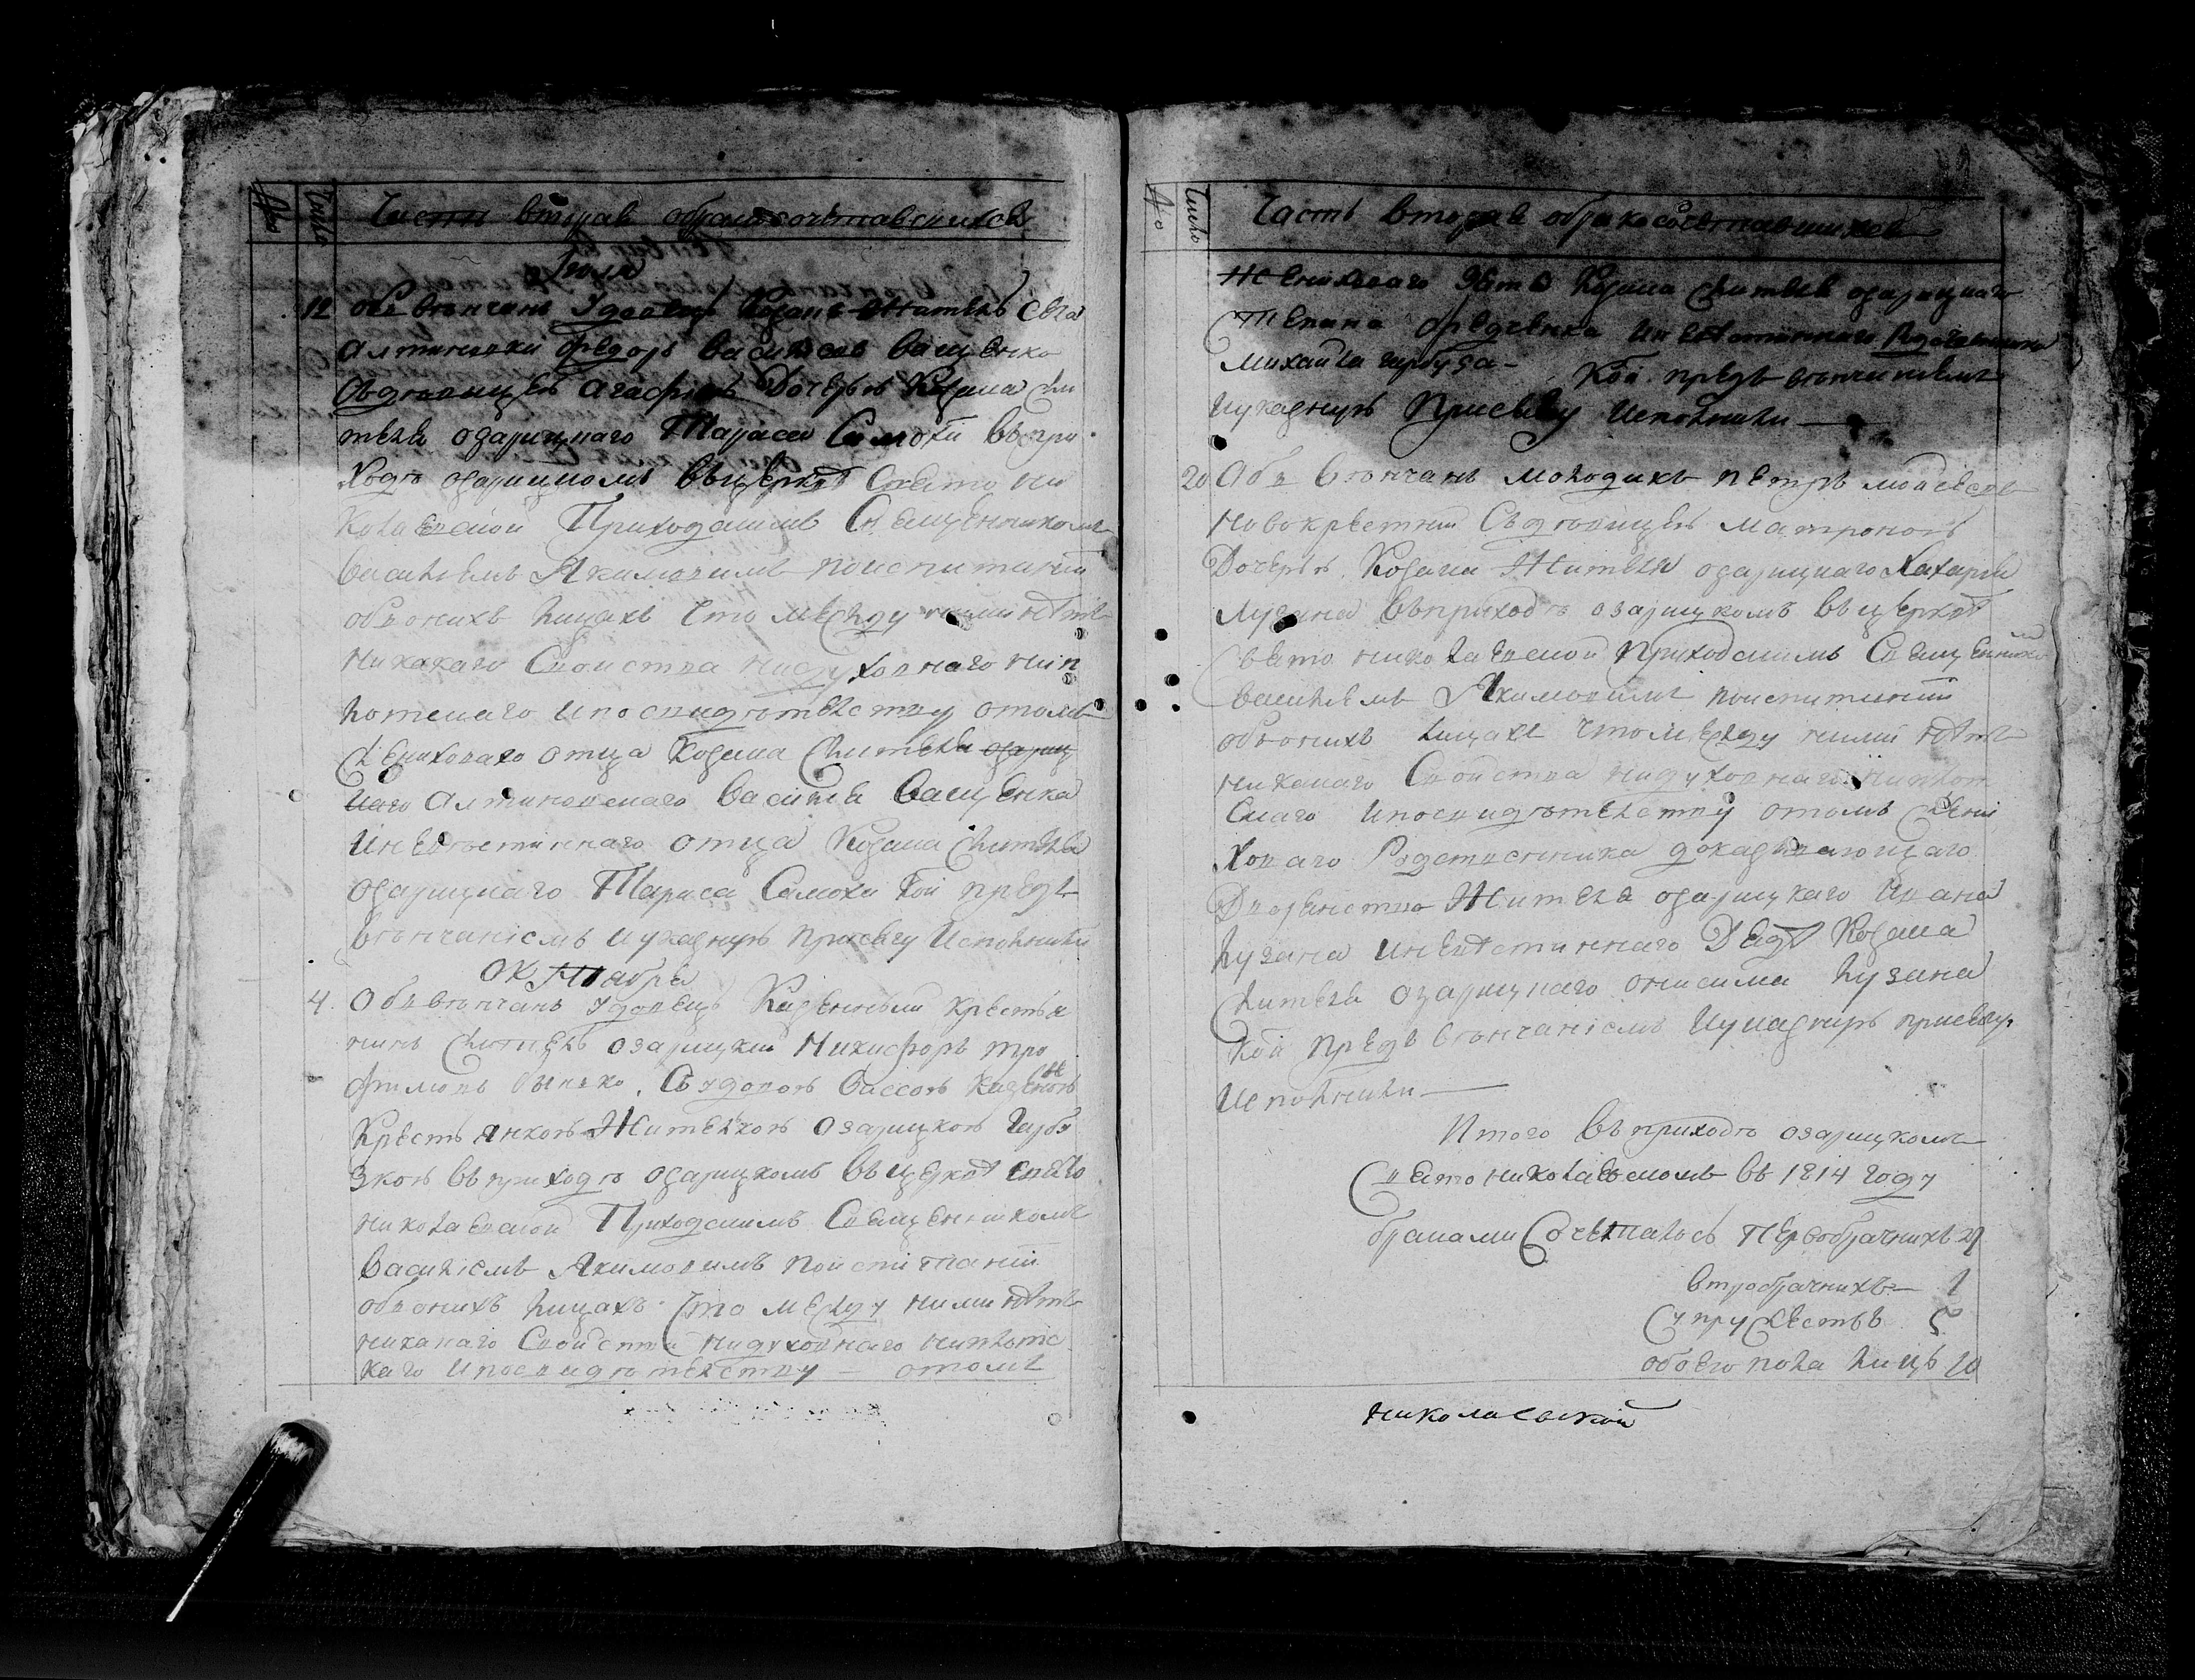 №
Число
Часть вторая обракосочетавшихся
Июля
12 обвѣнчанъ Удовецъ Козакъ Житель села
Алтиновки Федоръ Василіевъ Ващенко
Съдѣвицею Агафіею Дочерью Козака жи
теля озарицкаго Тараса Самохи въ при
ходѣ озарицкомъ въ церквѣ Свято ни
колаевской Приходскимъ Священникомъ
василіемъ Якимовимъ поиспитаніи
обвонихъ лицахъ что между ними нѣтъ
никакаго Свойства нидуховнаго нип
лотскаго ипосвидѣтелству отомъ
женихового отца Козака жителя озариц
каго Алтиновскаго Василія Ващенка
иневѣстиннаго отца Козака жителя
озарицкаго Тараса Самохи кои предъ
вѣнчаніемъ иуказнуъ присягу исполнили
ОКТоября
4. Обвѣнчанъ Удовецъ Казенный крестья
нинъ житель озарицкий Никифоръ тро
фимовъ Съ вдовою вассою казенною
Крестьянкою Жителкою озарицкою Гарбу
зкою въ приходѣ озарицкомъ въ церквѣ свято
николаевской Приходскимъ Священникомъ
Василіемъ Якимовимъ поиспитаніи
обвонихъ лицахъ что между ними нѣтъ
никакаго Свойства нидуховнаго ниплотс
каго ипосвидѣтелству отомъ
№
Число
Часть вторая обракосочетавшихся
Женихового Козака жителя озарицкаго
Степана Федченка иневѣстиннаго
Михайла гарбуза Кои предъ вѣнчаніемъ
иуказнуъ присягу исполнили
20 Обвѣнчанъ молодикъ петръ мойсеевъ
Новокрестний Съдѣвицею матроною
Дочерью Козака Жителя озарицкаго Захарія
Лузана въприходѣ озарицкомъ въ церквѣ
Свято николаевской приходскимъ Священнико
василіемъ Якимовимъ поиспитаніи
обвонихъ лицахъ что между ними нѣтъ
никакаго Свойства нидуховнаго ниплот
скаго ипосвидѣтелству отомъ жени
хового Родственника доказивающаго
Дворянство Жителя озарицкаго Ивана
лузана иневѣстиннаго Дядѣ Козака
жителя озарицкаго онисима лузана
кои предъ вѣнчаніемъ иуказнуъ присягу
исполнили
Итого въ приходѣ озарицкомъ
Свято николаевскомъ въ 1814 году
браками Сочеталось первобрачнихъ
втробрачнихъ 1
Супружествъ 5
обоего пола лицъ 10
николаевской